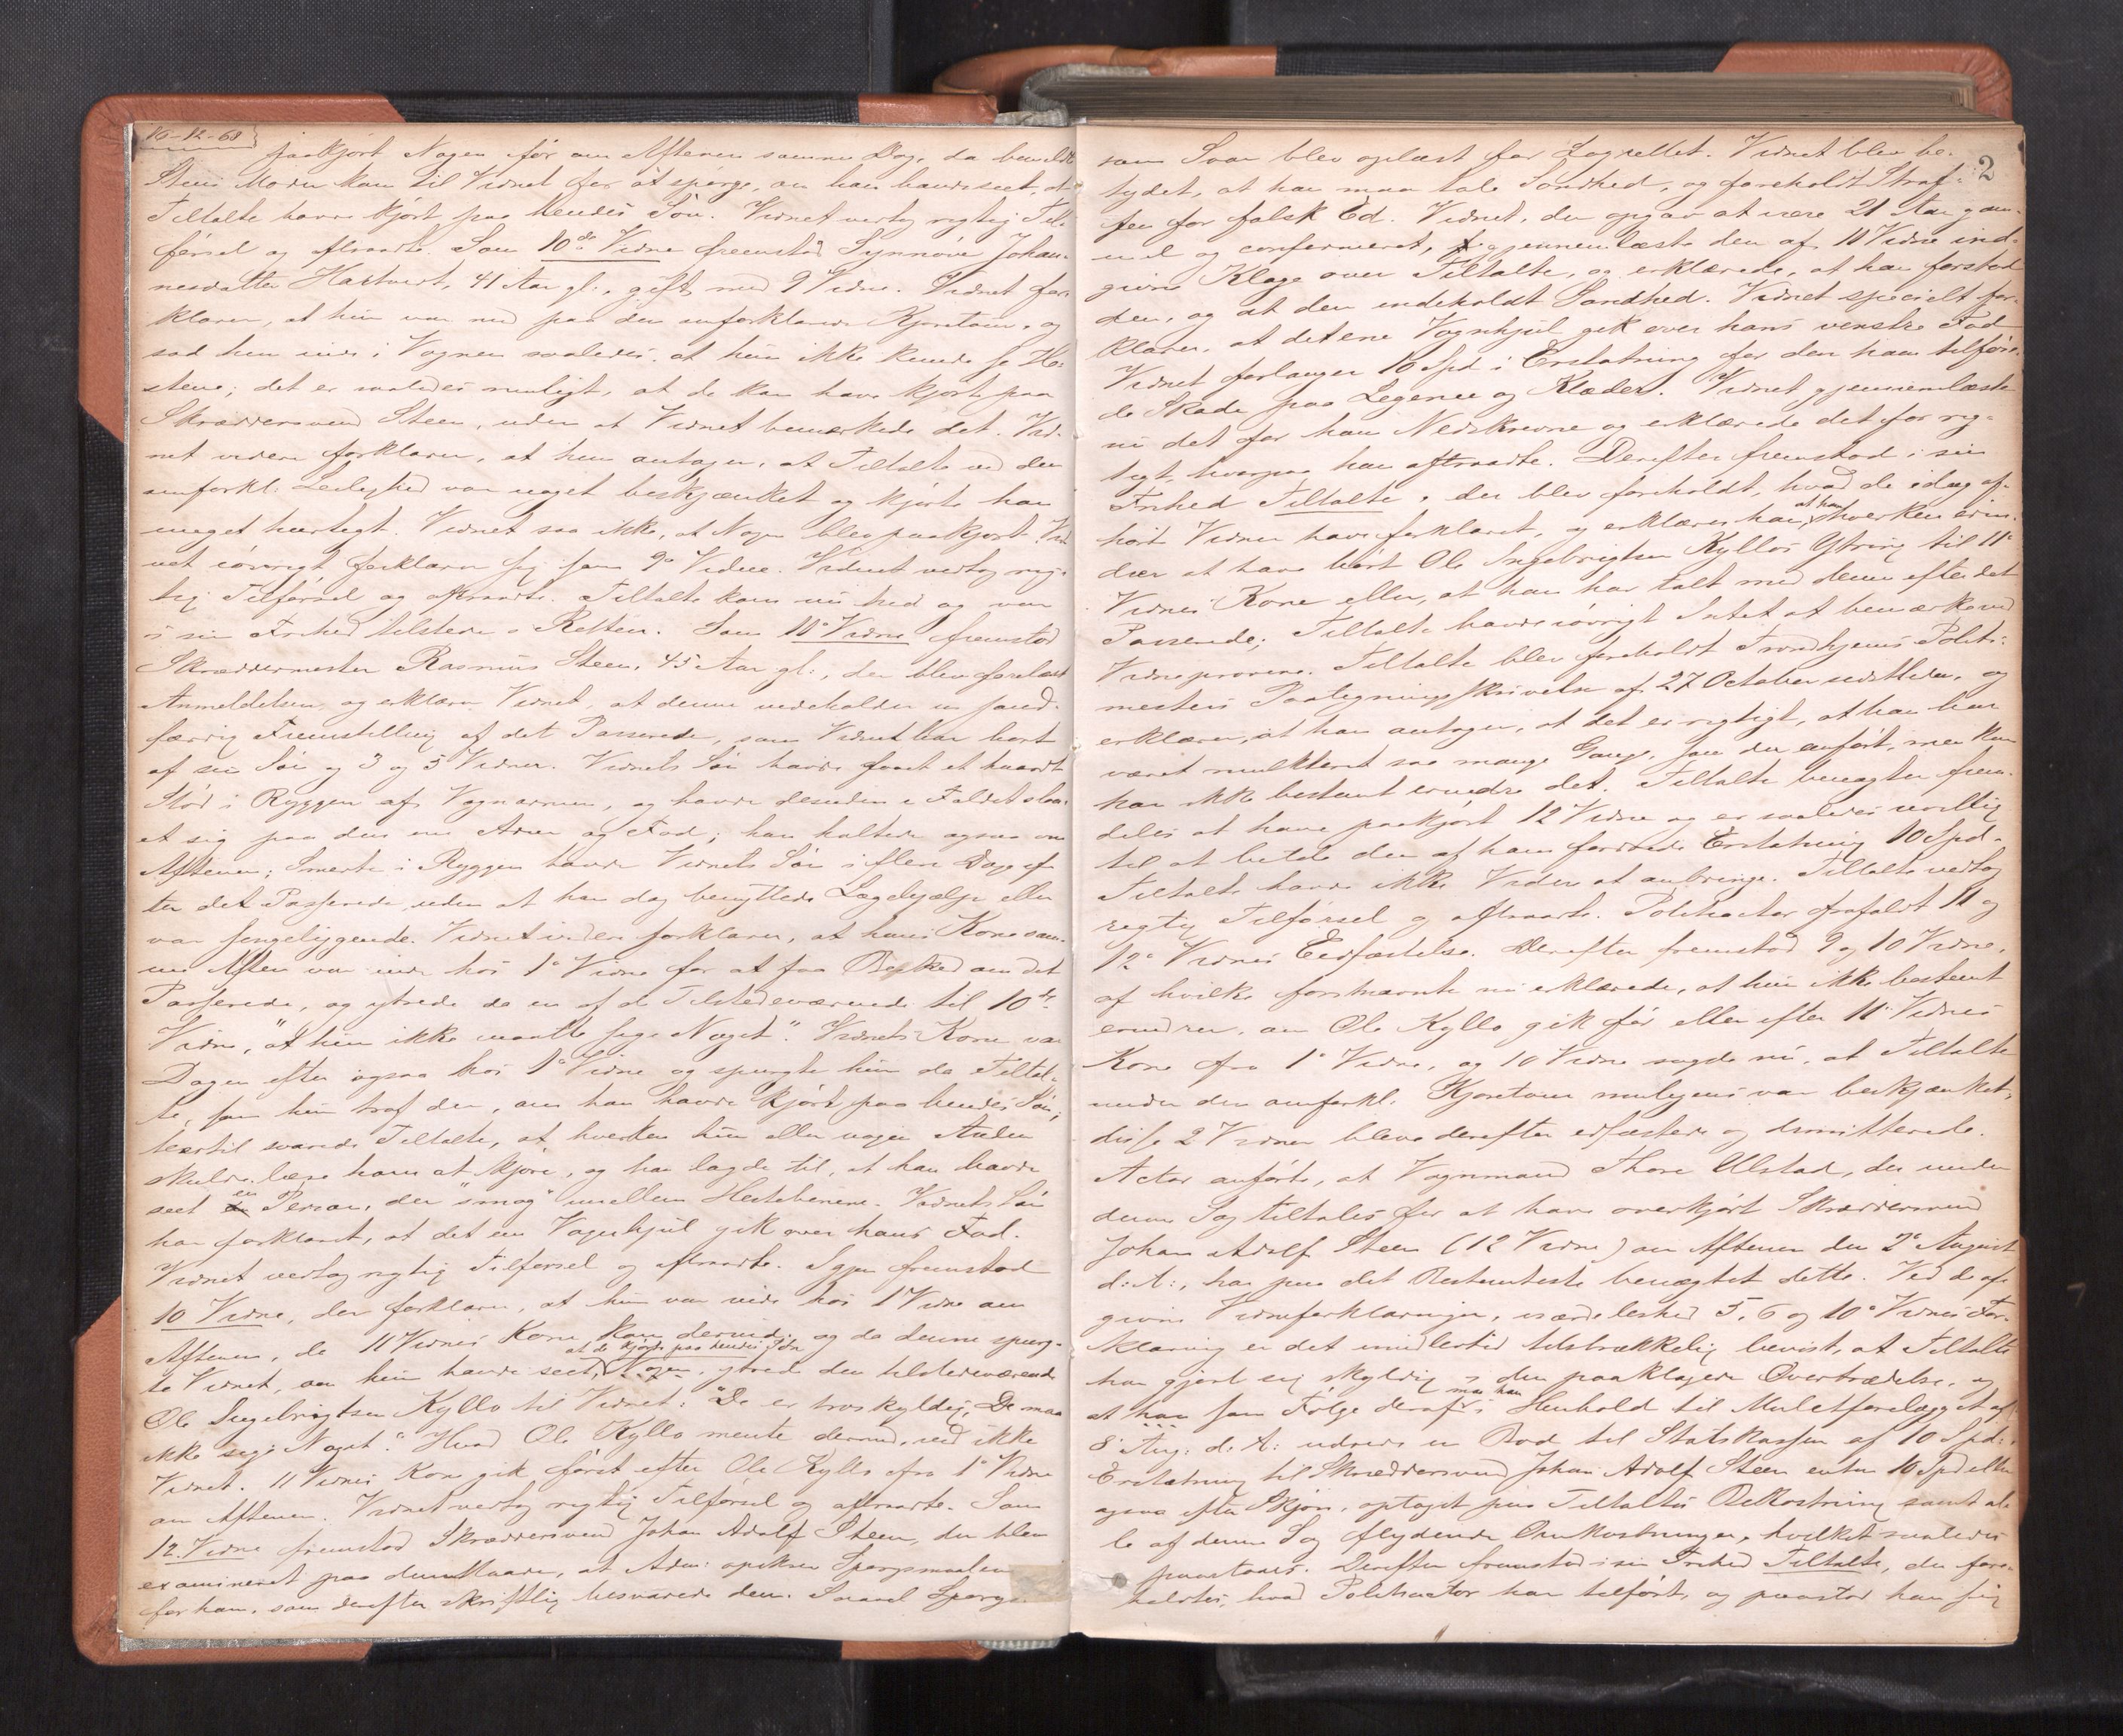 16-12-68
paakjørt Nogen før om Aftenen samme Dag, da
Steens Moder kom til Vidnet for at spørge, om han havde seet, at
Tiltalte havde kjørt paa hendes Søn. Vidnet vedtog rigtig Til-
førsel og aftraadte. Som 10de Vidne fremstod Synnøve Johan-
nesdatter Hartvert, 41 Aar gl., gift med 9 Vidne. Vidnet for-
klarer, at hun var med paa den omforklarede Kjøretour, og
sad hun inde i Vognen saaledes, at hun ikke kunde se He-
stene; det er saaledes muligt, at de kan have kjørt paa
Skræddersvend Steen, uden at Vidnet bemærkede det. Vid-
net videre forklarer, at hun antager, at Tiltalte ved den
omforkl. Leilighed var noget beskjænket og kjørte han
meget hurtigt. Vidnet saa ikke, at Nogen blev paakjørt. Vid-
net iøvrigt forklarer sig som 9de Vidne. Vidnet vedtog rig-
tig Tilførsel og aftraadte. Tiltalte kom nu hid og var
i sin Frihed tilstede i Retten. Som 11e Vidne fremstod
Skræddermester Rasmus Steen, 45 Aar gl., der blev forelæst
Anmeldelsen, og erklærer Vidnet, at denne indeholder en sand-
færdig Fremstilling af det Passerede, som Vidnet har hørt
af sin Søn og 3 og 5 Vidner. Vidnets Søn havde faaet et haardt
Stød i Ryggen af Vognarmen, og havde desuden i Faldet slaa-
et sig paa den ene Arm og Fod; han haltede ogsaa om
Aftenen; Smerte i Ryggen havde Vidnets Søn i flere Dage ef-
ter det Passerede uden at han dog benyttede Lægehjælp eller
var sengeliggende. Vidnet videre forklarer, at hans Kone sam-
me Aften var inde hos 1e Vidne for at faa Besked om det
Passerede, og ytrede da en af de Tilstedeværende til 10de
Vidne, "at hun ikke maatte sige Noget". Vidnets Kone var
Dagen efter ogsaa hos 1e Vidne og spurgte hun da Tiltal-
te, som hun traf der, om han havde kjørt paa hendes Søn,
hertil svarede Tiltalte, at hverken hun eller nogen Anden
skulde lære ham at kjøre, og han lagde til, at han havde
seet en Person, der "smog" mellem Hestebenene. Vidnets Søn
har forklaret, at det ene Vognhjul gik over hans Fod.
Vidnet vedtog rigtig Tilførsel og aftraadte. Igjen fremstod
10 Vidne, der forklarer, at hun var inde hos 1 Vidne om
Aftenen, da 11 Vidnes Kone kom derind, og da denne spurg-
at de kjørte paa hendes Søn
te Vidnet, om hun havde seet, Nogen, ytred den tilstedeværende
Ole Ingebrigtsen Kyllo til Vidnet: "De er troskyldig, De maa
ikke sige Noget". Hvad Ole Kyllo mente dermed, ved ikke
Vidnet. 11 Vidnes Kone gik først efter Ole Kyllo fra 1e Vidne
om Aftenen. Vidnet vedtog rigtig Tilførsel og aftraadte. Som
12. Vidne fremstod Skræddersvend Johan Adolf Steen, der blev
examineret paa den Maade, at Adm: opskrev Spørgsmaalene
for ham, som derefter skriftlig besvarede dem. Saavel Spørgs-
2
som Svar blev oplæst for Lagrettet. Vidnet blev be-
tydet, at han maa tale Sandhed, og foreholdt Straf-
fen for falsk Ed. Vidnet, der opgav at være 21 Aar gam-
mel og confirmeret, gjennemlæste den af 11 Vidne ind-
givne Klage over Tiltalte, og erklærede, at han forstod
den, og at den indeholdt Sandhed. Vidnet specielt for-
klarer, at det ene Vognhjul gik over hans venstre Fod
Vidnet forlanger 10 Spd i Erstatning for den ham tilføie-
de Skade paa Legeme og Klæder. Vidnet gjennemlæste
nu det for ham Nedskrevne og erklærede det for rig-
tigt, hvorpaa han aftraadte. Derefter fremstod i sin
Frihed Tiltalte, der blev foreholdt, hvad de idag af-
hørte Vidner have forklaret, og erklærer han, at han hverken erin-
drer at have hørt Ole Ingebrigtsen Kyllos Ytring til 11e
Vidnes Kone eller, at han har talt med denne efter det
Passerede; Tiltalte havde iøvrigt Intet at bemærke ved
Vidneprovene. Tiltalte blev foreholdt Trondhjems Politi-
mesters Paategningsskrivelse af 27 October sidstleden, og
erklærer, at han antager, at det er rigtigt, at han har
været mulkteret saa mange Gange, som der anført, men kan
han ikke bestemt erindre det. Tiltalte benægter frem-
deles at have paakjørt 12 Vidne og er saaledes uvillig
til at betale den af ham fordrede Erstatning 10 Spd.
Tiltalte havde ikke Videre at anbringe. Tiltalte vedtog
rigtig Tilførsel og aftraadte. Politiactor frafaldt 11 og
12e Vidnes Eedfæstelse. Derefter fremstod 9 og 10 Vidne,
af hvilke førstnævnte nu erklærede, at hun ikke bestemt
erindrer, om Ole Kyllo gik før eller efter 11 Vidnes
Kone fra 1e Vidne, og 10 Vidne sagde nu, at Tiltalte
under den omforkl. Kjøretour muligens var beskjænket,
disse 2 Vidner bleve derefter edfæstede og dimitterede.
Actor anførte, at Vognmand Thore Ulstad, der under
denne Sag tiltales for at have overkjørt Skræddersvend
Johan Adolf Steen (12 Vidne) om Aftenen den 2e August
d: A:, har paa det Bestemteste benægtet dette. Ved de af-
givne Vidneforklaringer, isærdeleshed 5, 6 og 10e Vidnes For-
klaring er det imidlertid tilstrækkelig bevist, at Tiltalte
har gjort sig skyldig i den paaklagede Overtrædelse, og
maa han
at han som Følge deraf i Henhold til Mulctforelægget af
8 Aug: d: A: udrede en Bod til Statskassen af 10 Spd:,
Erstatning til Skræddersvend Johan Adolf Steen enten 10 Spd eller
ogsaa efter Skjøn, optaget paa Tiltaltes Bekostning samt al-
le af denne Sag flydende Omkostninger, hvilket saaledes
paastaaes. Derefter fremstod i sin Frihed Tiltalte, der fore-
holdtes, hvad Politiactor har tilført, og paastod han sig